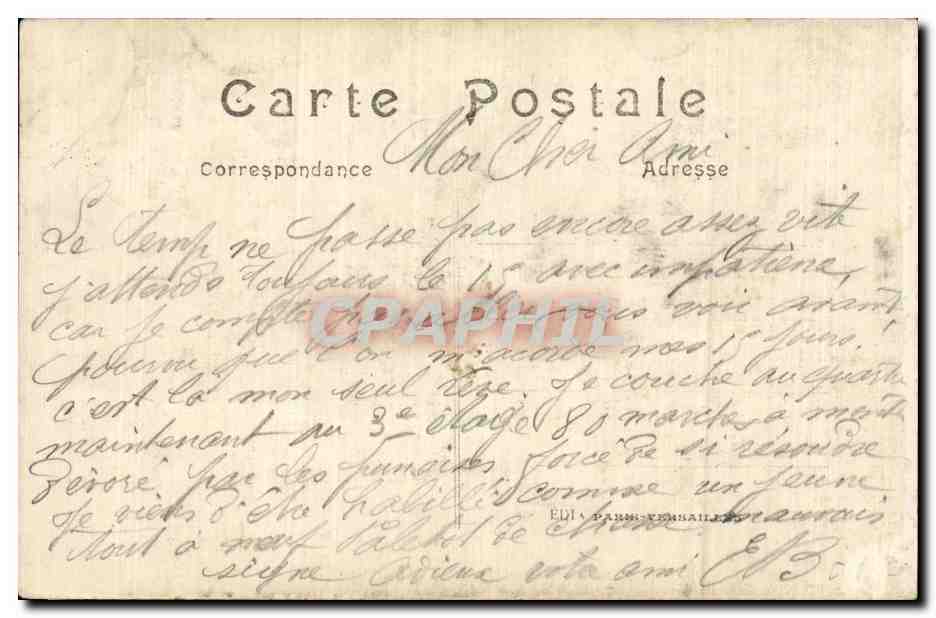 Carte Postale
Mon Cher Ami
Correspondance Adresse
Le temp ne passe pas encore assez vite
j'attends toujours le 15 avec impatience,
car je compte vous voir avant,
CPAPHIL
pourvu que l'on m'acorde mes 15 jours.
c'est là mon seul rêve. Je couche au quartier
maintenant au 3e étage 80 marches à monter
dévoré par les punaises forcé de si résoudre
Je viens d'être habillé comme un jeune
EDIA PARIS-VERSAILLES
tout à neuf mauvais
signe. Adieux votre ami EB